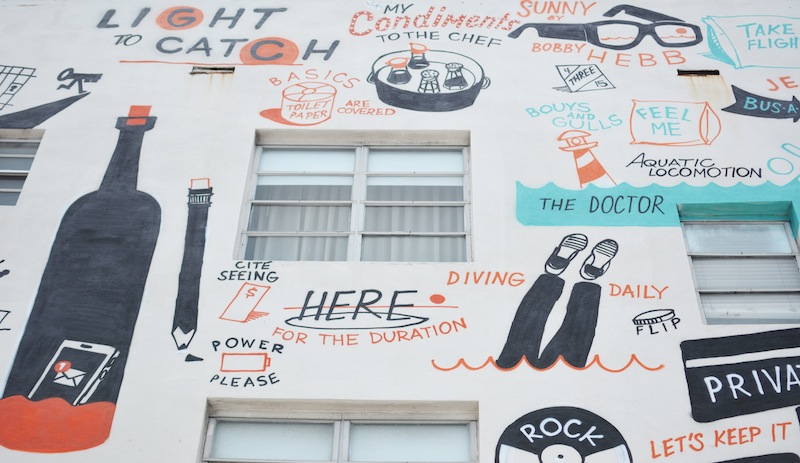 LIGHT
TO CATCH
MY
Condiments
TO THE CHEF
SUNNY
BY
BOBBY
HEBB
TAKE
FLIGHT
BASICS
TOILET
PAPER
ARE
COVERED
4
THREE
15
BOUYS
AND
GULLS
FEEL
ME
BUS·A
AQUATIC
LOCOMOTION
THE DOCTOR
CITE
SEEING
$
HERE
FOR THE DURATION
DIVING
DAILY
FLIP
POWER
PLEASE
1
ROCK
PRIVA
LET'S KEEP IT